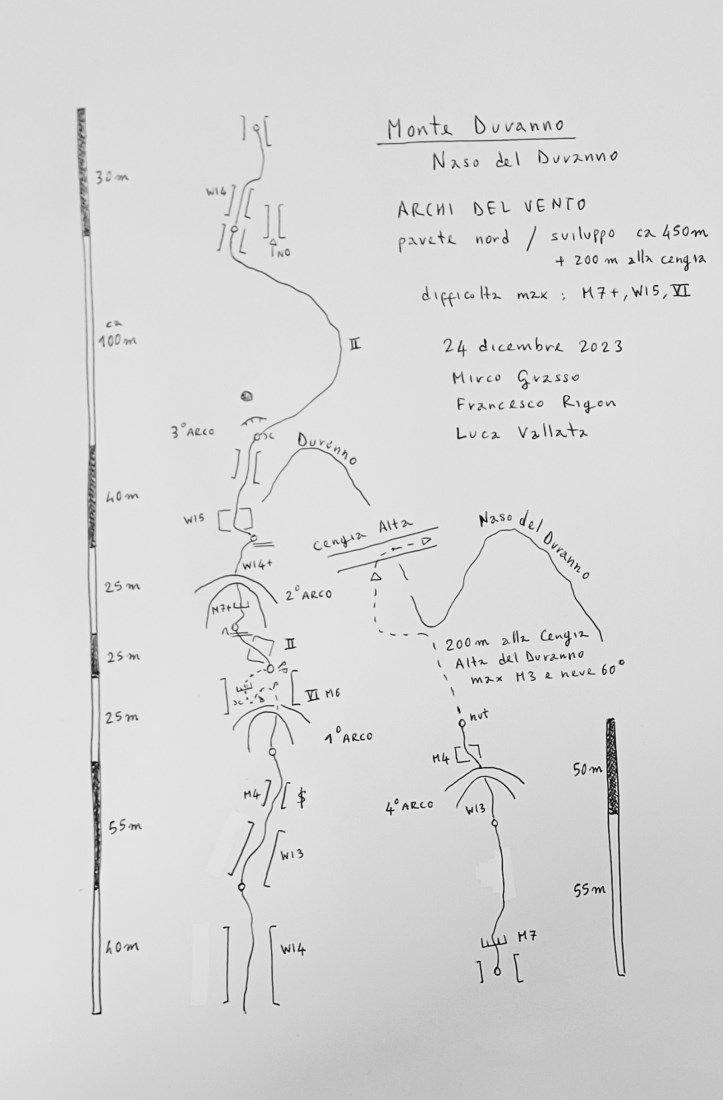 Monte Duranno
Naso del Duranno
ARCHI DEL VENTO
parete nord / sviluppo ca 450m
+ 200 m alla cengia
difficolta max : M7+, WI5, VI
24 dicembre 2023
Mirco Grasso
Francesco Rigon
Luca Vallata
30 m
WI4
NO
ca
100 m
II
3° ARCO
sc
Duranno
40 m
WI5
Cengia Alta
Naso del Duranno
WI4+
25 m
2° ARCO
M7+
II
25 m
200 m alla Cengia
Alta del Duranno
max M3 e neve 60°
VI M6
sc
25 m
nut
1° ARCO
M4
50 m
M4
$
4° ARCO
WI3
55 m
WI3
55 m
M7
40 m
WI4